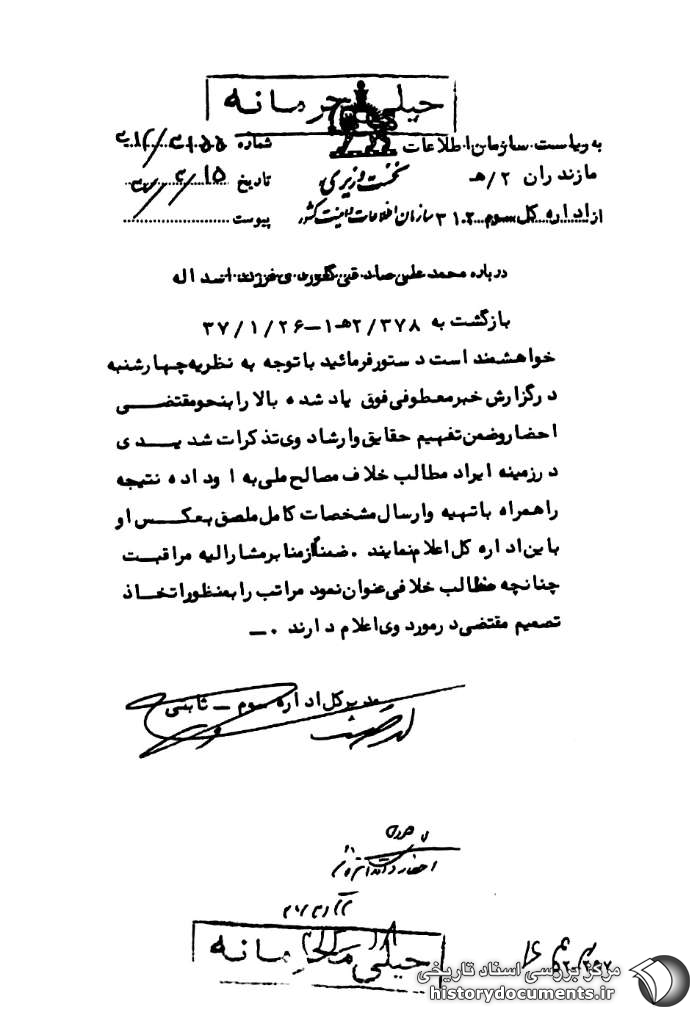 خیلی محرمانه
به ریاست سازمان اطلاعات
شماره
مازندران ۲/هـ
نخست وزیری
تاریخ
از اداره کل سوم ۳۱۲
سازمان اطلاعات و امنیت کشور
پیوست
درباره محمد علی صادقی گلوردی فرزند اسداله
بازگشت به ۲/۳۷۸هـ۱–۳۷/۱/۲۶
خواهشمند است دستور فرمائید با توجه به نظریه چهارشنبه
در گزارش خبر معطوفی فوق یاد شده بالا را بنحو مقتضی
احضار و ضمن تفهیم حقایق و ارشاد وی تذکرات شدیدی
در زمینه ایراد مطالب خلاف مصالح ملی به او داده نتیجه
را همراه با تهیه و ارسال مشخصات کامل ملصق بعکس او
باین اداره کل اعلام نمایند . ضمناً از منابر مشارالیه مراقبت
چنانچه مطالب خلافی عنوان نمود مراتب را بمنظور اتخاذ
تصمیم مقتضی در مورد وی اعلام دارند .–
مدیر کل اداره سوم – ثابتی
خیلی محرمانه
مرکز بررسی اسناد تاریخی
historydocuments.ir